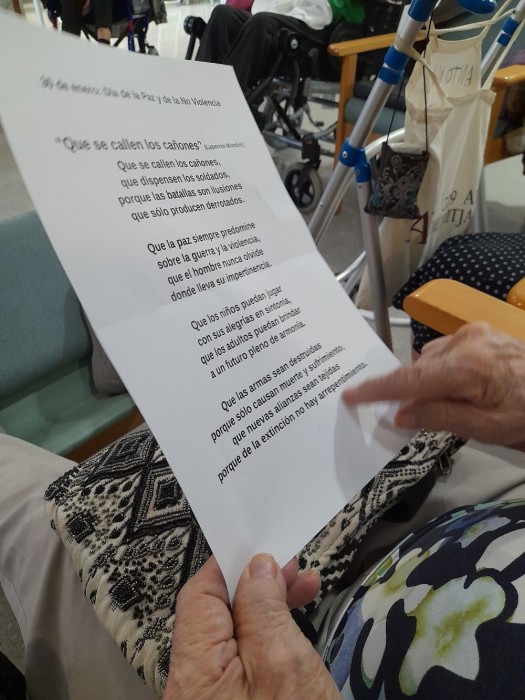 30 de enero: Día de la Paz y de la No Violencia
"Que se callen los cañones"
Que se callen los cañones,
que dispensen los soldados,
porque las batallas son ilusiones
que sólo producen derrotados.
Que la paz siempre predomine
sobre la guerra y la violencia,
que el hombre nunca olvide
donde lleva su impertinencia.
Que los niños puedan jugar
con sus alegrías en sintonía,
que los adultos puedan brindar
a un futuro pleno de armonía.
Que las armas sean destruidas
porque sólo causan muerte y sufrimiento,
que nuevas alianzas sean tejidas
porque de la extinción no hay arrepentimiento.